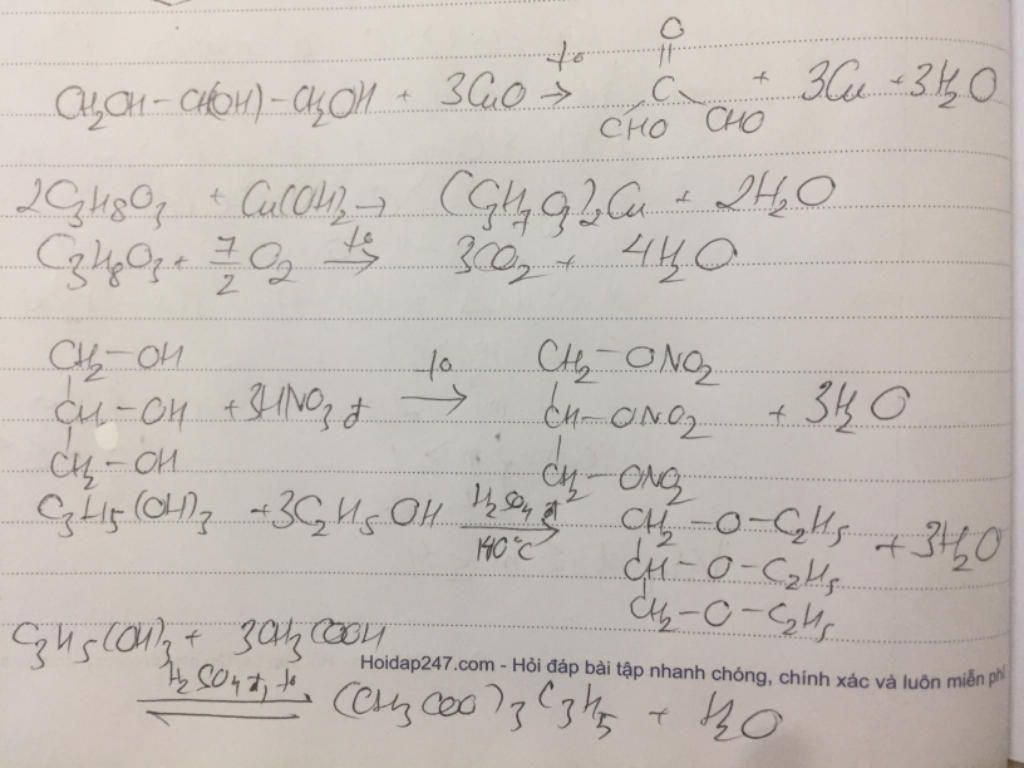 O
||
CH2OH - CH(OH) - CH2OH + 3CuO →(to) C + 3Cu + 3H2O
CHO CHO
2C3H8O3 + Cu(OH)2 → (C3H7O3)2Cu + 2H2O
C3H8O3 + 7/2 O2 →(to) 3CO2 + 4H2O
CH2-OH CH2-ONO2
CH-OH + 3HNO3 đ →(to) CH-ONO2 + 3H2O
CH2-OH CH2-ONO2
C3H5(OH)3 + 3C2H5OH →(H2SO4 đ, 140°C) CH2-O-C2H5 + 3H2O
CH-O-C2H5
CH2-O-C2H5
C3H5(OH)3 + 3CH3COOH
Hoidap247.com - Hỏi đáp bài tập nhanh chóng, chính xác và luôn miễn phí
⇌(H2SO4 đ, to) (CH3COO)3C3H5 + H2O